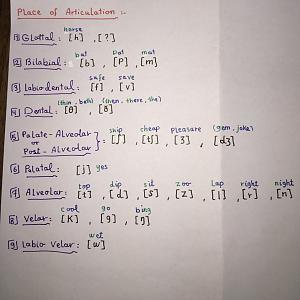 Place of Articulation :-
horse
1) Glottal : [h] , [?]
bat pat mat
2) Bilabial : [b] , [P] , [m]
safe save
3) Labiodental : [f] , [v]
(thin, bath) (then, there, the)
4) Dental : [θ] , [8]
ship cheap pleasure (gem, joke)
5) Palato-Alveolar or Post-Alveolar } = [ʃ] , [tʃ] , [ʒ] , [dʒ]
6) Palatal : [j] yes
top dip sit zoo lap right night
7) Alveolar : [t] , [d] , [s] , [z] , [l] , [r] , [n]
cool go bing
8) Velar : [K] , [g] , [ŋ]
wet
9) Labio Velar : [w]